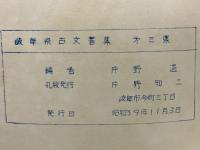 岐阜県古文書集 第三集
編者 片野温
孔版発行 片野知二
岐阜市今町三丁目
発行日 昭和39年11月3日